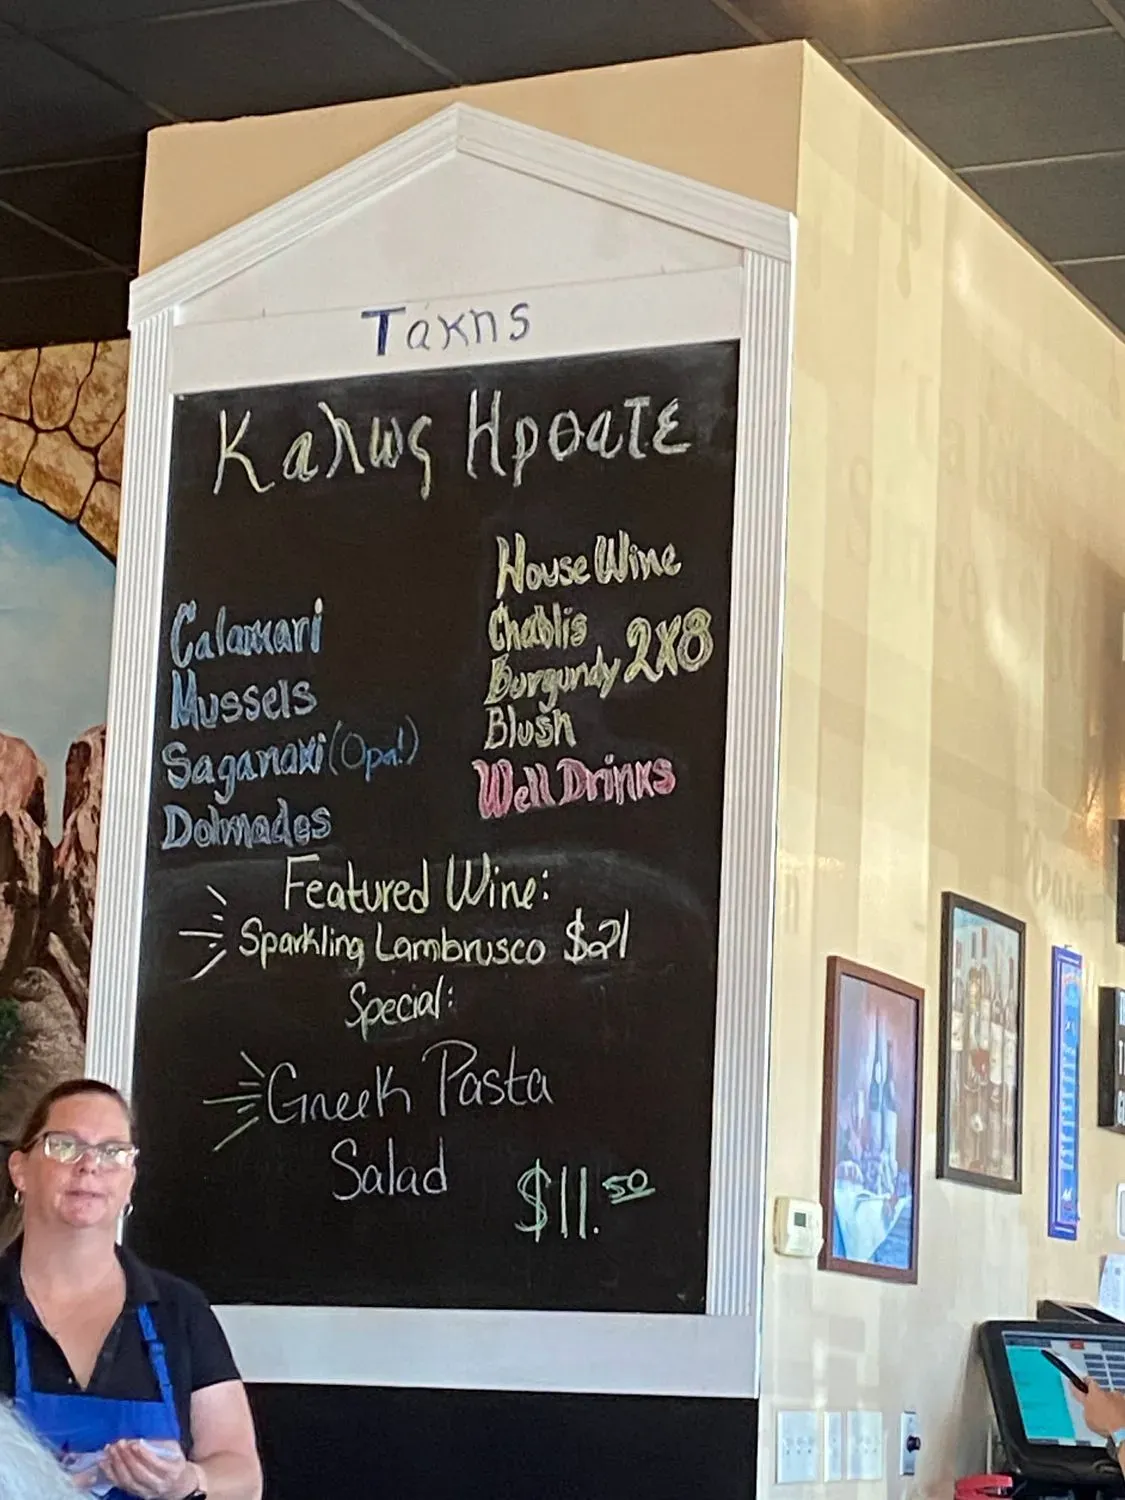 Τακης
Καλως Ηρθατε
House Wine
Chablis
Burgundy 2x8
Blush
Well Drinks
Calamari
Mussels
Saganaki (Opa!)
Dolmades
Featured Wine:
Sparkling Lambrusco $21
Special:
Greek Pasta
Salad
$11.50